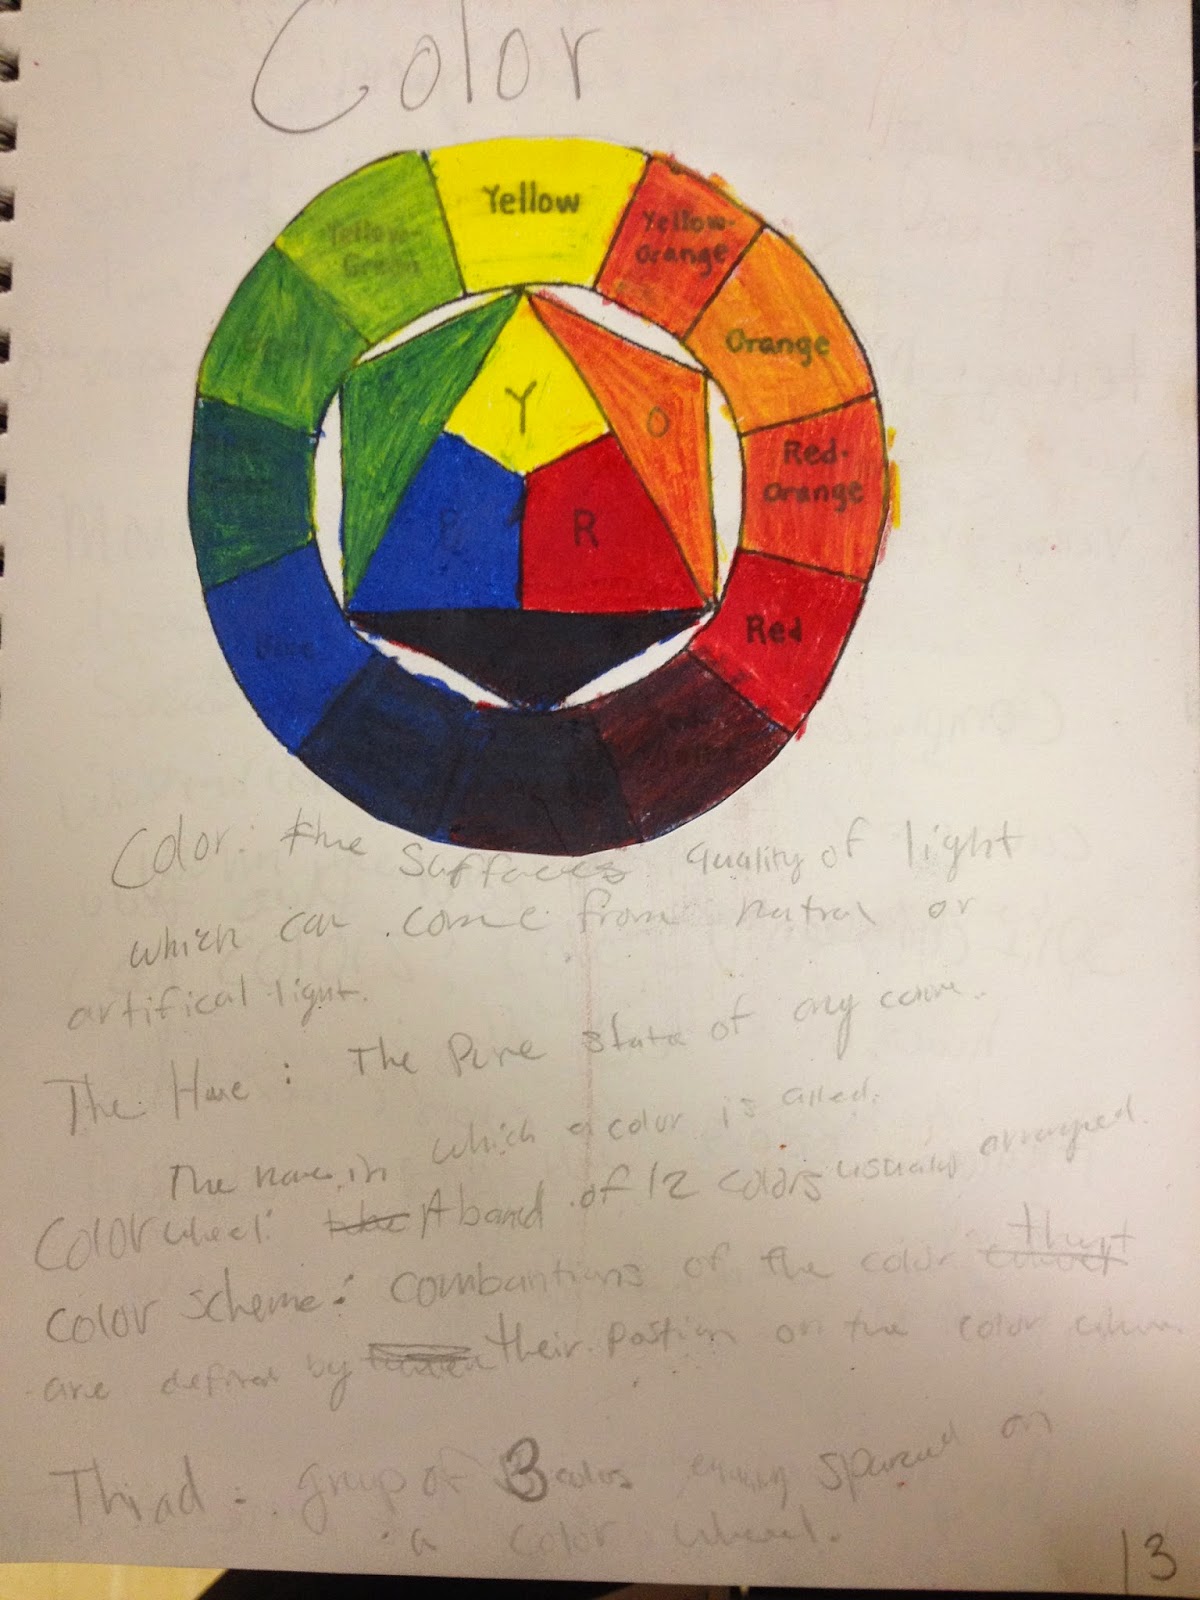 Color
Yellow
Yellow-
Green
Yellow-
Orange
Orange
Red-
Orange
Red
Blue
Y
O
R
B
Color: the surfaces quality of light
which can come from natral or
artifical light.
The Hue: The Pure state of any
The name in which a color is called.
Color wheel: A band of 12 colors usually arranged.
Color scheme: combantions of the color that
are defined by their postion on the color
Thiad: group of 3 colos spaced on
a color wheel.
13